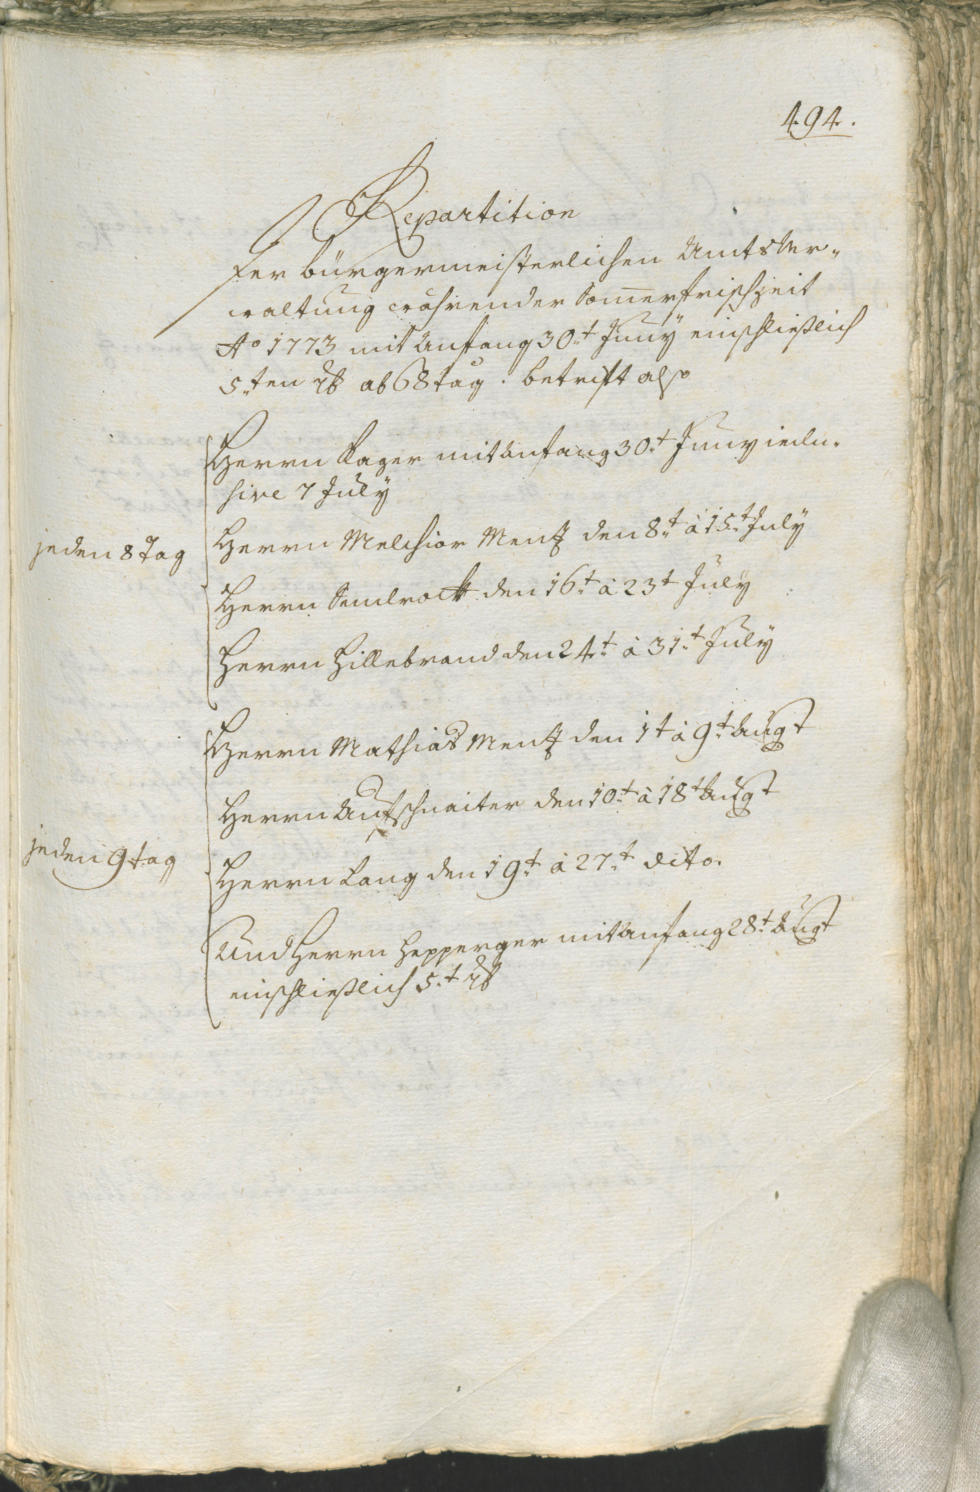 494.
Repartition
der bürgermeisterlichen Ambts Ver-
waltung während der Somerfrischzeit
Ao 1773 mit Anfang 30.t Juny einschließlich
5.ten 7b ab 68 tag. betrift also
Herrn Rager mit Anfang 30.t Juny inclu-
sive 7 July
jeden 8 Tag
Herrn Melchior Menz den 8.t à 15.t July
Herrn Semlrock den 16.t à 23t July
Herrn Hillebrand den 24.t à 31.t July
Herrn Mathias Menz den 1t à 9.t Augt
Herrn Aufschnaiter den 10.t à 18t Augt
jeden 9 tag
Herrn Lang den 19.t à 27.t dito.
Und Herrn Hepperger mit Anfang 28.t Augt
einschließlich 5.t 7b